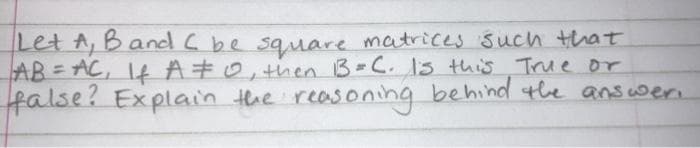 Let A, B and C be square matrices such that
AB = AC, If A ≠ 0, then B = C. Is this True or
false? Explain the reasoning behind the answer.